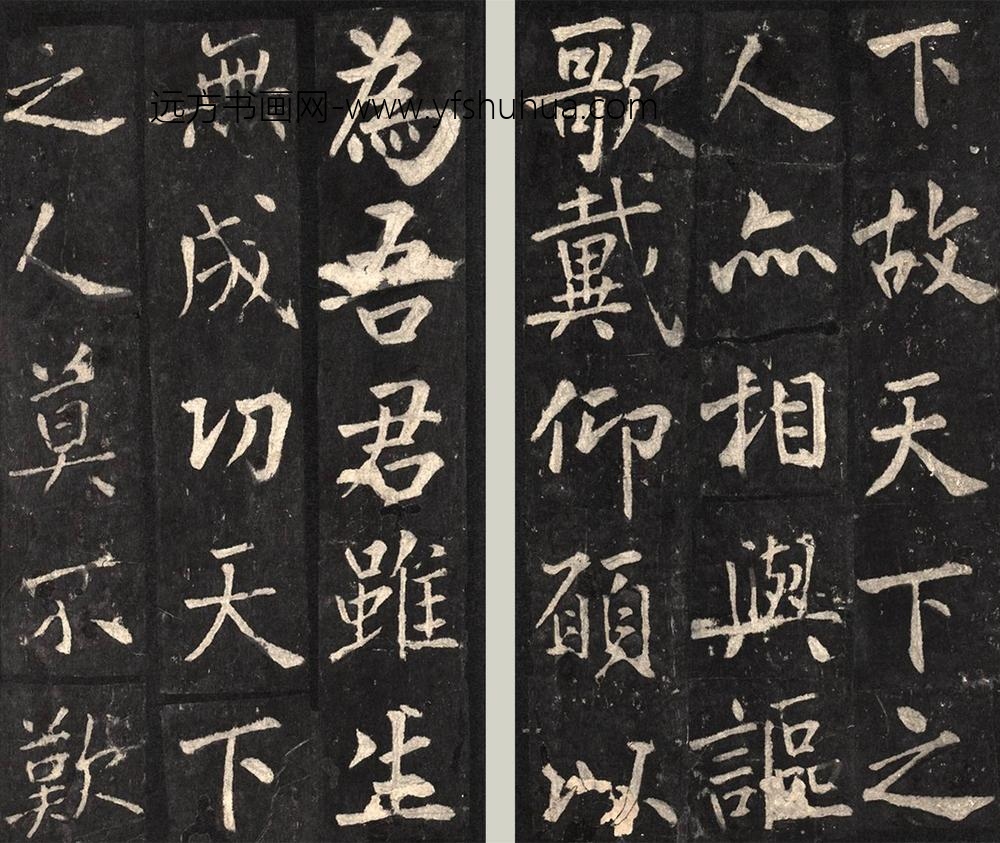 下故天下之
人亦相與謳
歌戴仰願以
為吾君雖生
無成功天下
之人莫不歎
远方书画网-www.yfshuhua.com